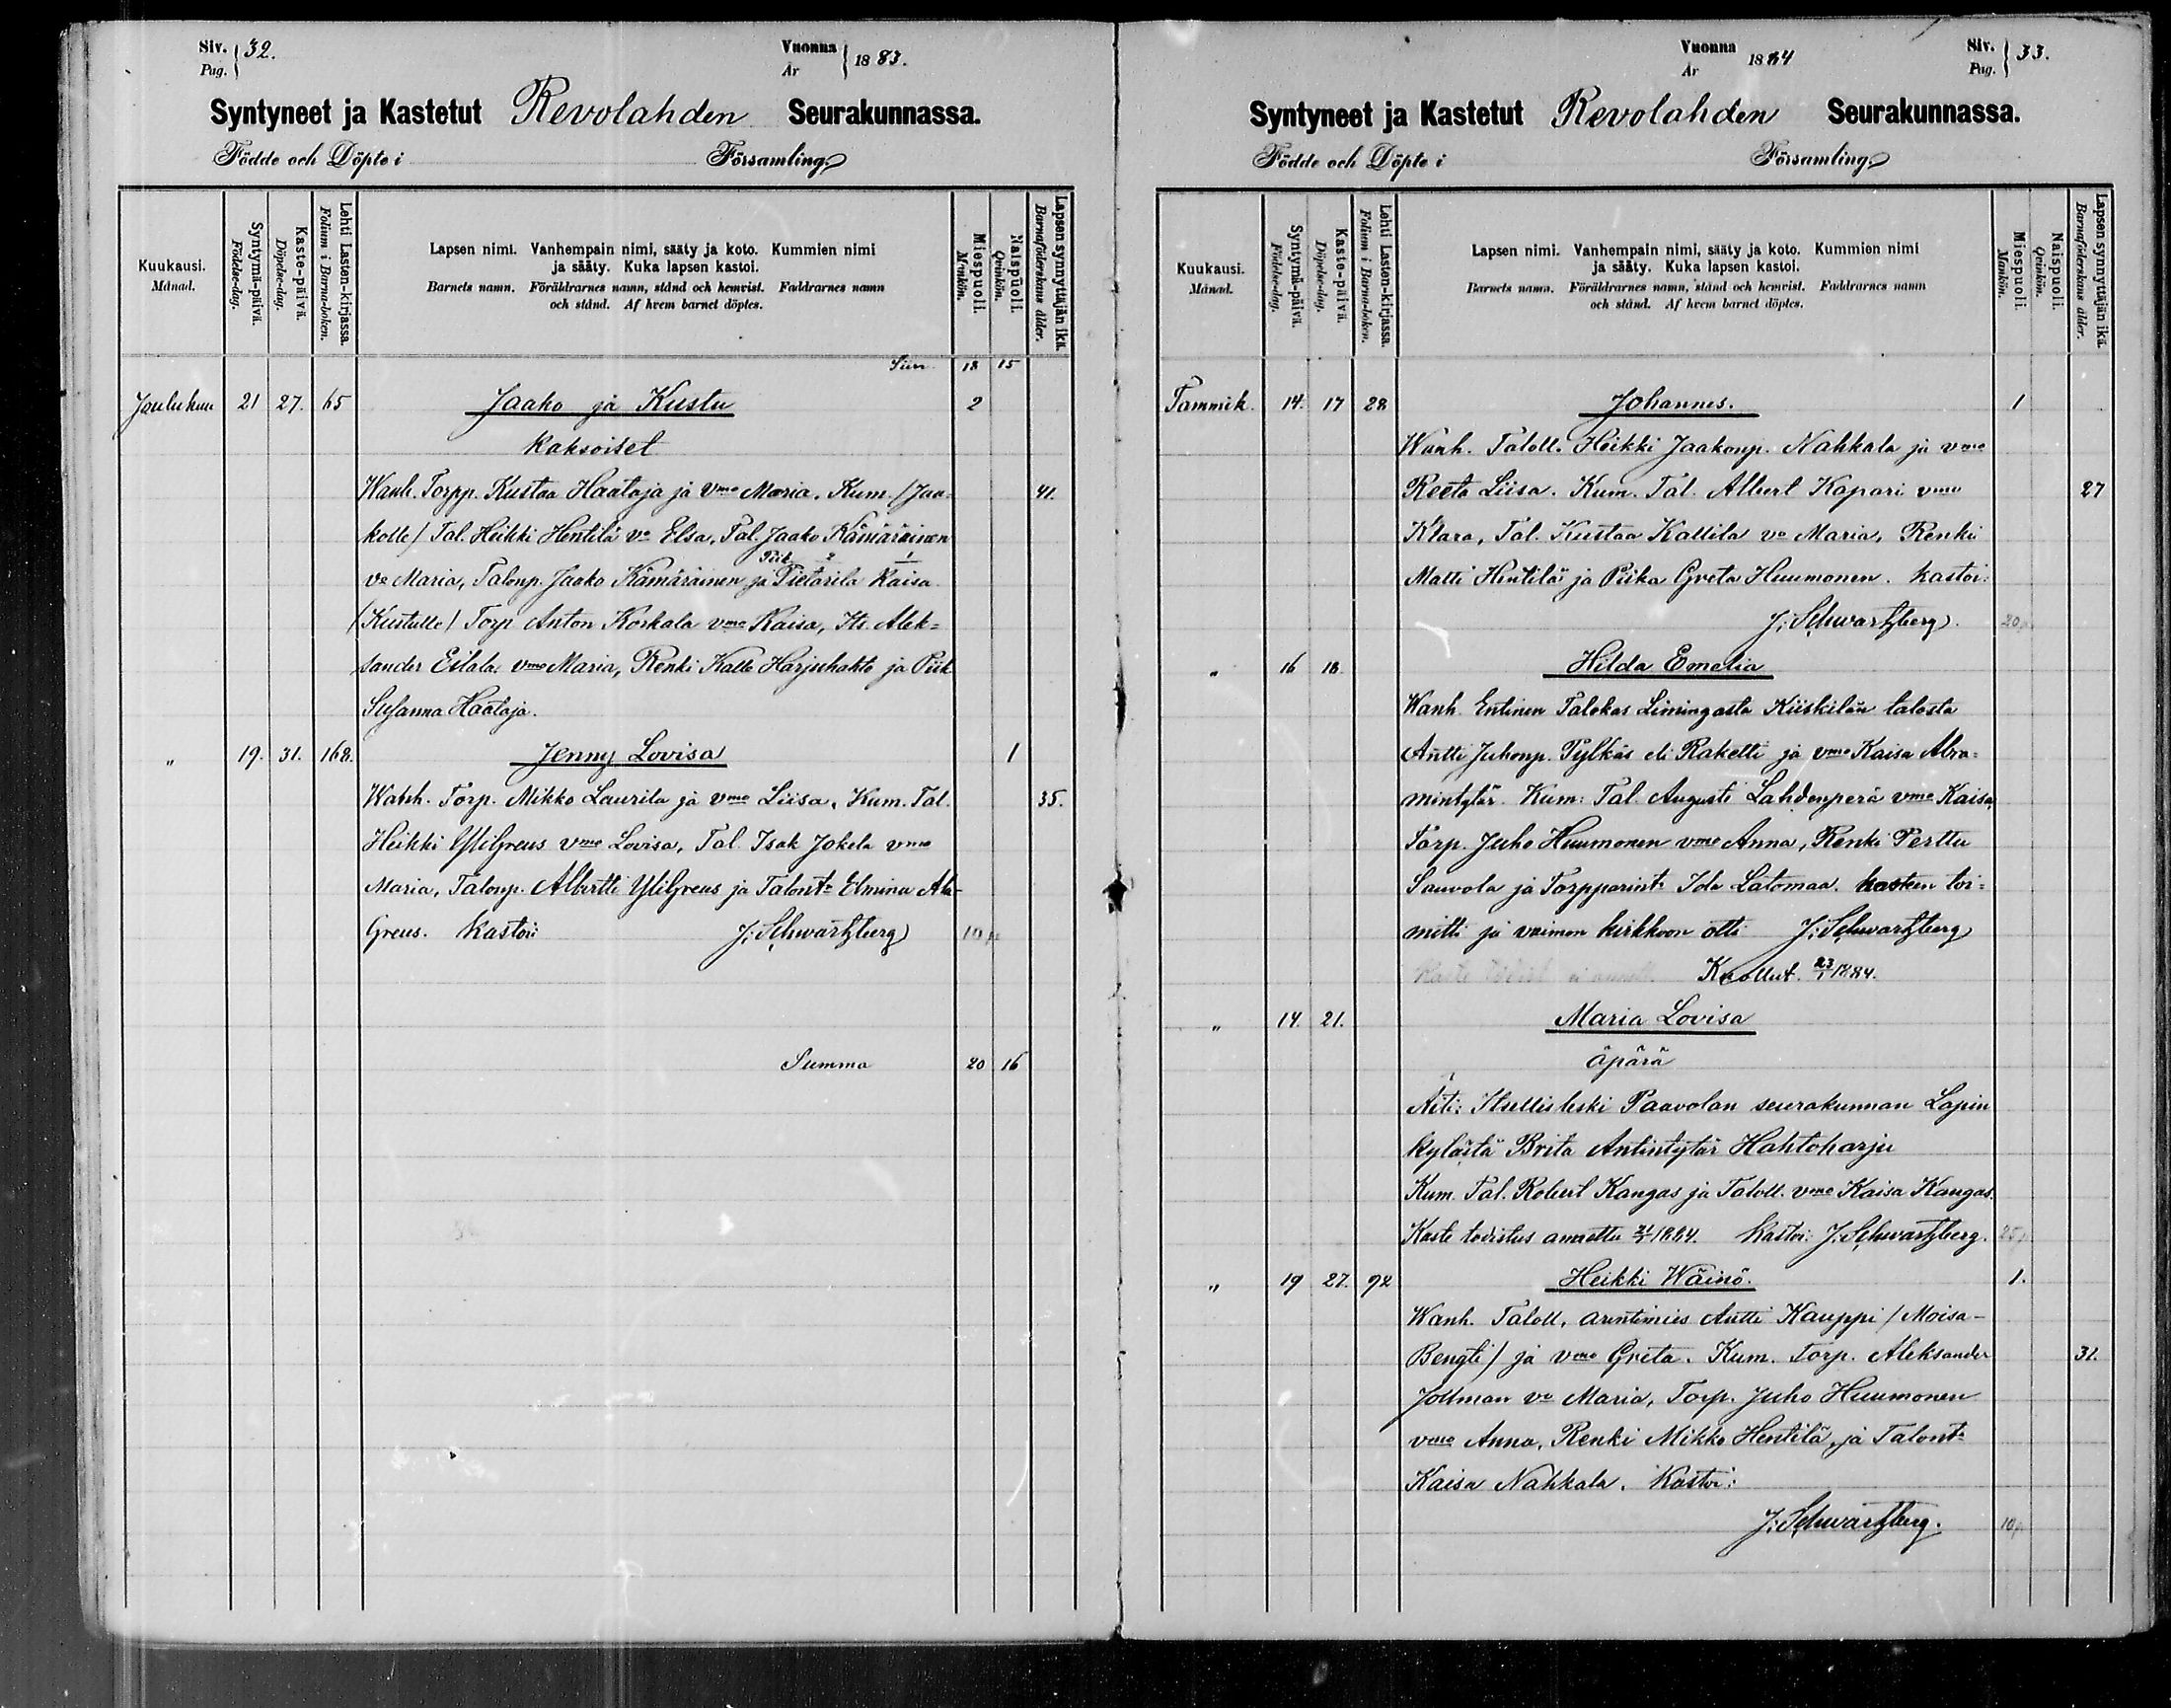 Siv. 32.
Pag.
Vuonna 1883.
År
Syntyneet ja Kastetut Revolahden Seurakunnassa.
Födde och Döpte i Församling
Kuukausi.
Månad.
Syntymä-päivä.
Födelse-dag.
Kaste-päivä.
Döpelse-dag.
Lehti Lasten-kirjassa.
Folium i Barna-boken.
Lapsen nimi. Vanhempain nimi, sääty ja koto. Kummien nimi
ja sääty. Kuka lapsen kastoi.
Barnets namn. Föräldrarnes namn, stånd och hemvist. Faddrarnes namn
och stånd. Af hvem barnet döptes.
Miespuoli.
Mankön.
Naispuoli.
Qvinkön.
Lapsen synnyttäjän ikä.
Barnaföderskans ålder.
Siirr. 18 15
Joulukuu 21 27. 65 Jaako ja Kustu 2
Kaksoiset
Wanh. Torpp. Kustaa Haataja ja vmo Maria. Kum. (Jaa- 41.
kolle) Tal. Heikki Hentilä vo Elsa, Tal. Jaako Kämäräinen
Piik. 2 1
vo Maria, Talonp. Jaako Kämäräinen ja Pietarila Kaisa
(Kustulle) Torp Anton Korkala vmo Kaisa, Its. Alek=
sander Eilala vmo Maria, Renki Kalle Harjuhahto ja Piik
Susanna Haataja.
„ 19. 31. 168. Jenny Lovisa 1
Wanh. Torp. Mikko Laurila ja vmo Liisa, Kum. Tal. 35.
Heikki YliGreus vmo Lovisa, Tal. Isak Jokela vmo
Maria, Talonp. Albertti YliGreus ja Talontr Elmina Ala-
Greus. Kastoi: J: Schwartzberg 10 p
Summa 20 16
Vuonna 1884
År
Siv. 33.
Pag.
Syntyneet ja Kastetut Revolahden Seurakunnassa.
Födde och Döpte i Församling
Kuukausi.
Månad.
Syntymä-päivä.
Födelse-dag.
Kaste-päivä.
Döpelse-dag.
Lehti Lasten-kirjassa.
Folium i Barna-boken.
Lapsen nimi. Vanhempain nimi, sääty ja koto. Kummien nimi
ja sääty. Kuka lapsen kastoi.
Barnets namn. Föräldrarnes namn, stånd och hemvist. Faddrarnes namn
och stånd. Af hvem barnet döptes.
Miespuoli.
Mankön.
Naispuoli.
Qvinkön.
Lapsen synnyttäjän ikä.
Barnaföderskans ålder.
Tammik. 14. 17 28 Johannes. 1
Wanh. Taloll. Heikki Jaakonp. Nahkala ja vmo
Reeta Liisa. Kum. Tal. Albert Kapari vmo 27
Klara, Tal. Kustaa Kallila vo Maria, Renki
Matti Hentilä ja Piika Greta Huumonen. Kastoi:
J: Schwartzberg. 20 p
„ 16 18 Hilda Emelia
Wanh. Entinen Talokas Limingasta Kiiskilän talosta
Antti Juhonp. Pylkäs eli Raketti ja vmo Kaisa Abra=
mintytär. Kum: Tal. Augusti Lahdenperä vmo Kaisa,
Torp. Juho Huumonen vmo Anna, Renki Perttu
Sauvola ja Torpparintr Ida Latomaa. kasteen toi=
mitti ja vaimon kirkkoon otti J: Schwartzberg
Kuollut. 23/1 1884.
„ 14. 21. Maria Lovisa
äpärä
Äiti: Itsellisleski Paavolan seurakunnan Lapin
kylästä Brita Antintytär Hahtoharju
Kum. Tal. Robert Kangas ja Taloll. vmo Kaisa Kangas.
Kaste todistus annettu 21/1 1884. Kastoi: J. Schwartzberg. 25 p
„ 19 27. 92 Heikki Wäinö. 1.
Wanh. Taloll. arentimies Antti Kauppi (Moisa-
Bengti) ja vmo Greta. Kum. Torp. Aleksander 31.
Jollman vo Maria, Torp. Juho Huumonen
vmo Anna, Renki Mikko Hentilä, ja Talontr
Kaisa Nahkala. Kastoi:
J: Schwartzberg. 10 p